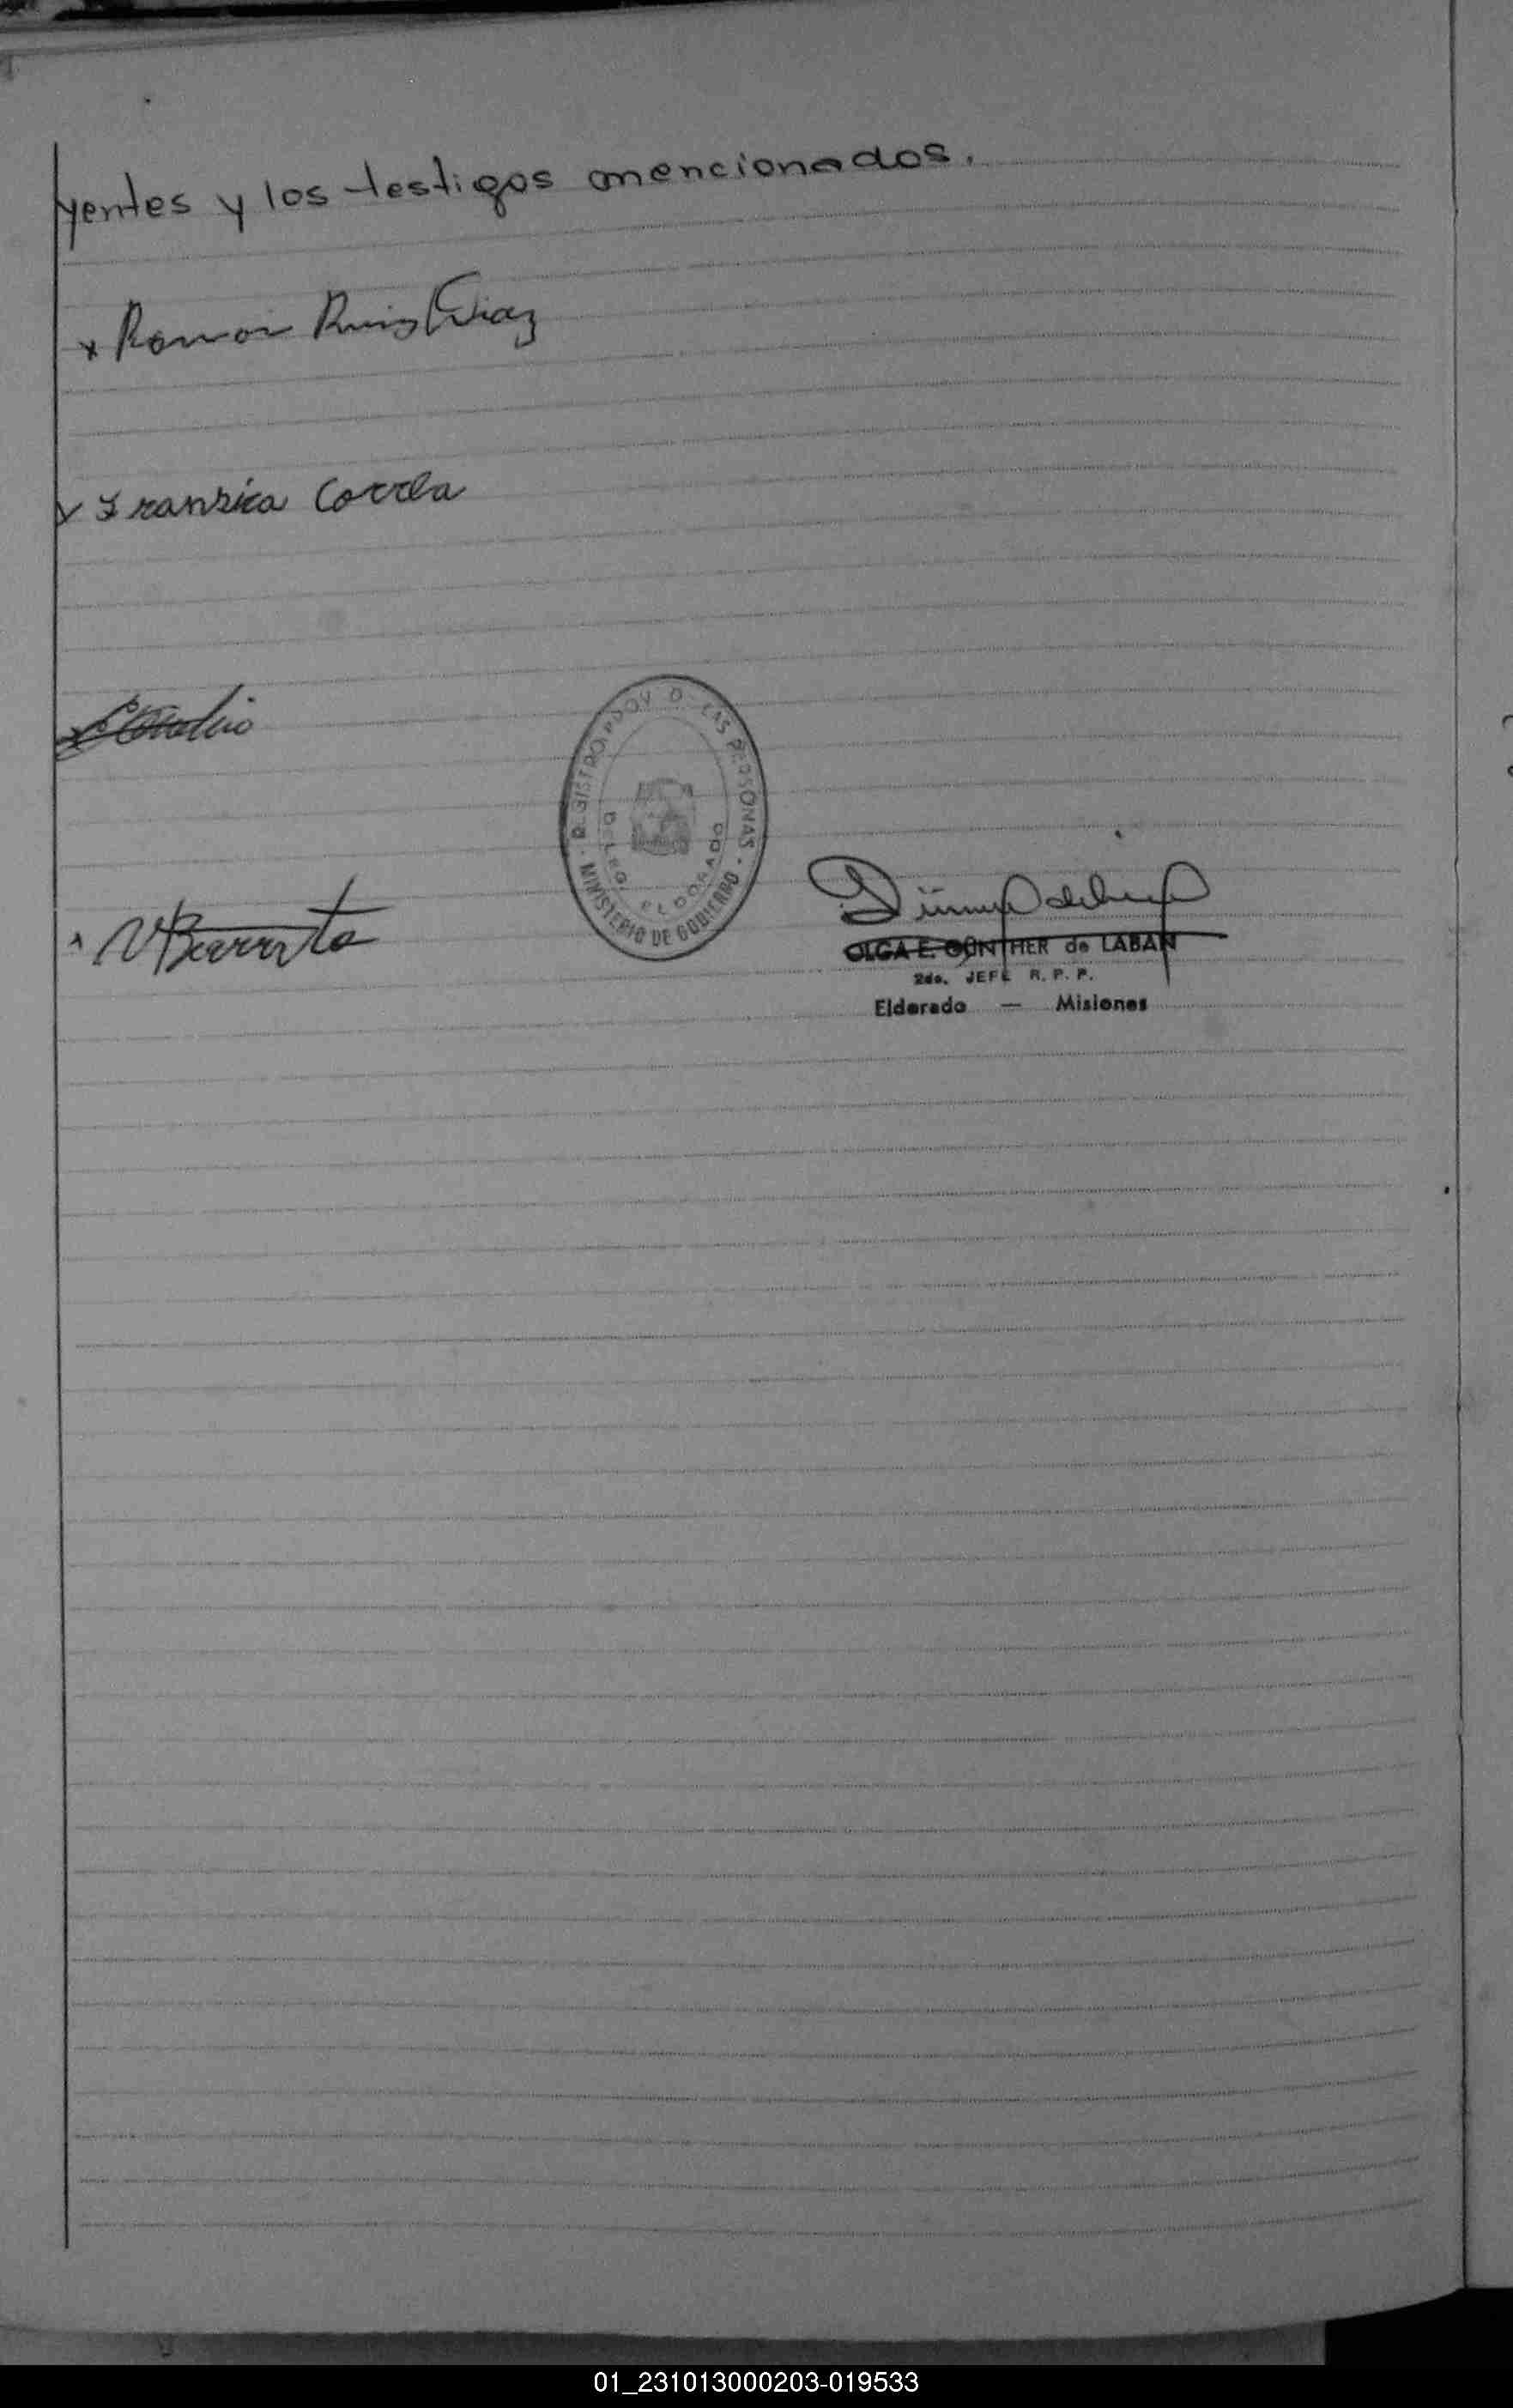 yentes y los testigos mencionados.
x Ramon Ruiz Diaz
x Fransica Correa
REGISTRO PROV. D. LAS PERSONAS
DELEG. ELDORADO
MINISTERIO DE GOBIERNO
OLGA E. GÜNTHER de LABAN
2do. JEFE R. P. P.
Eldorado — Misiones
01_231013000203-019533